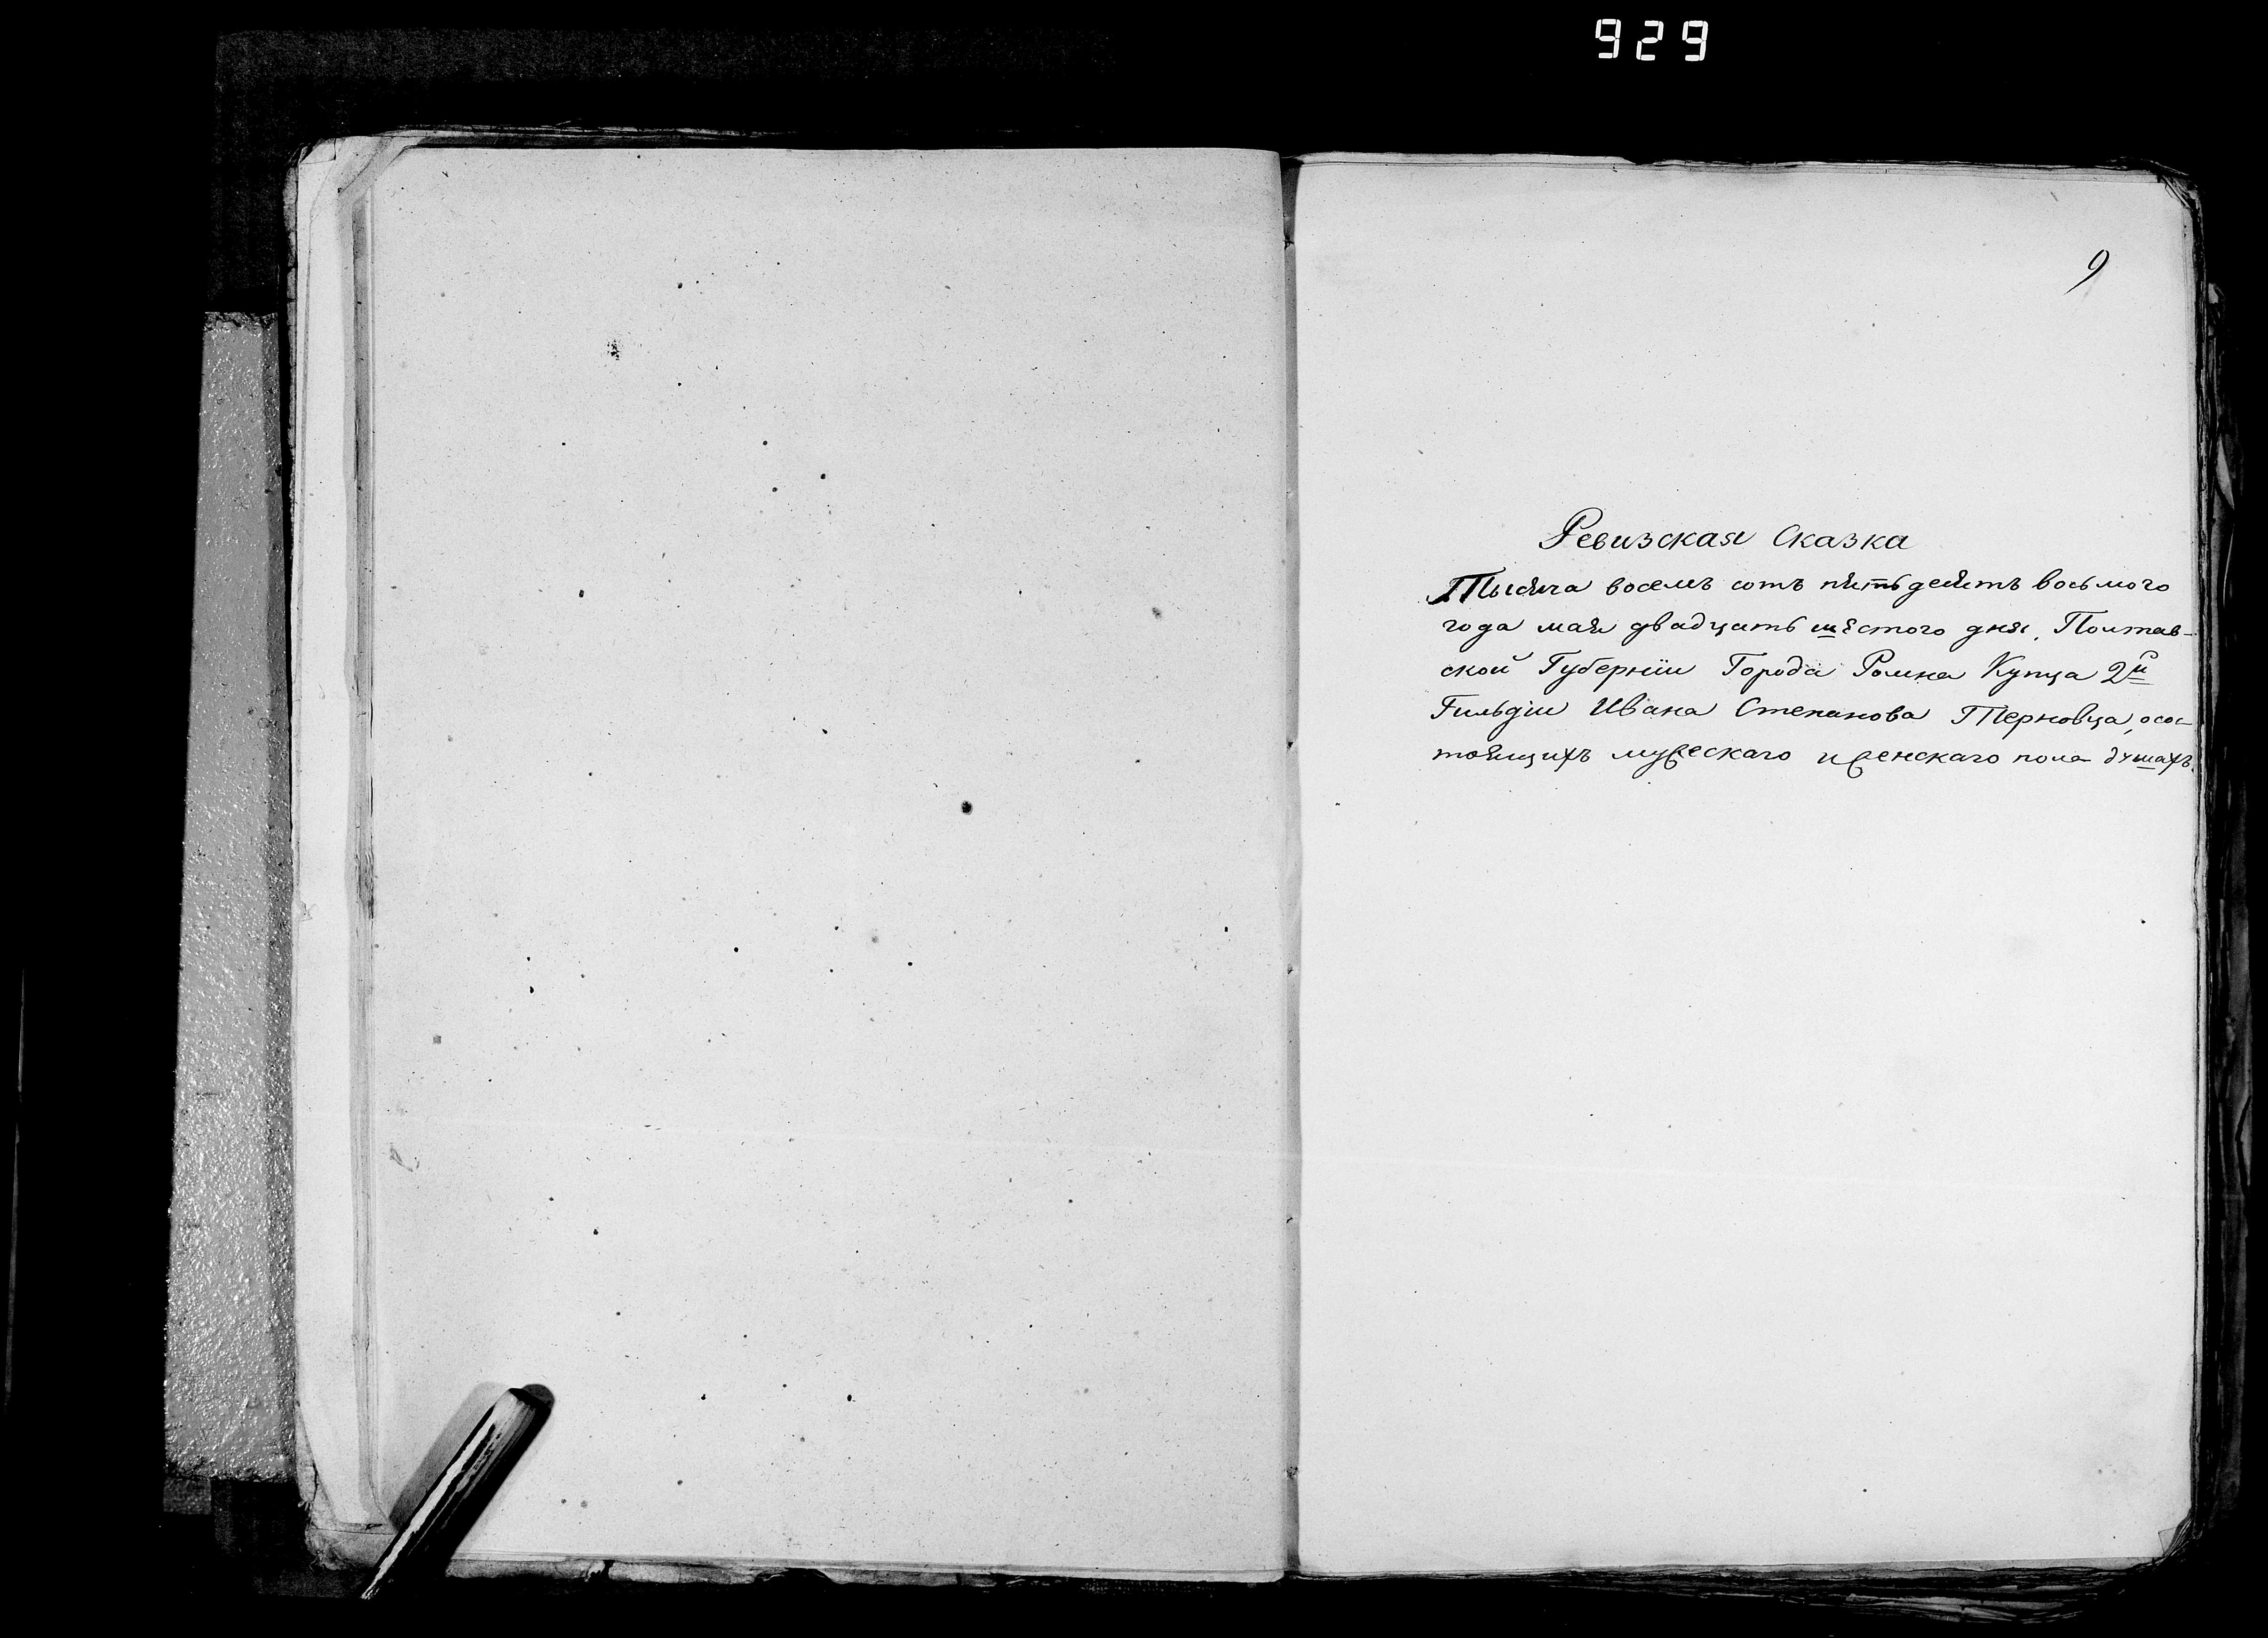 929
9
Ревизская Сказка
Тысяча восемъ сотъ пятьдесятъ восьмого
года мая двадцать шестого дня, Полтав-
ской Губерніи Города Ромна Купца 2й
Гильдіи Ивана Степанова Терновца, осос-
тоящихъ мужескаго иженскаго пола душахъ.